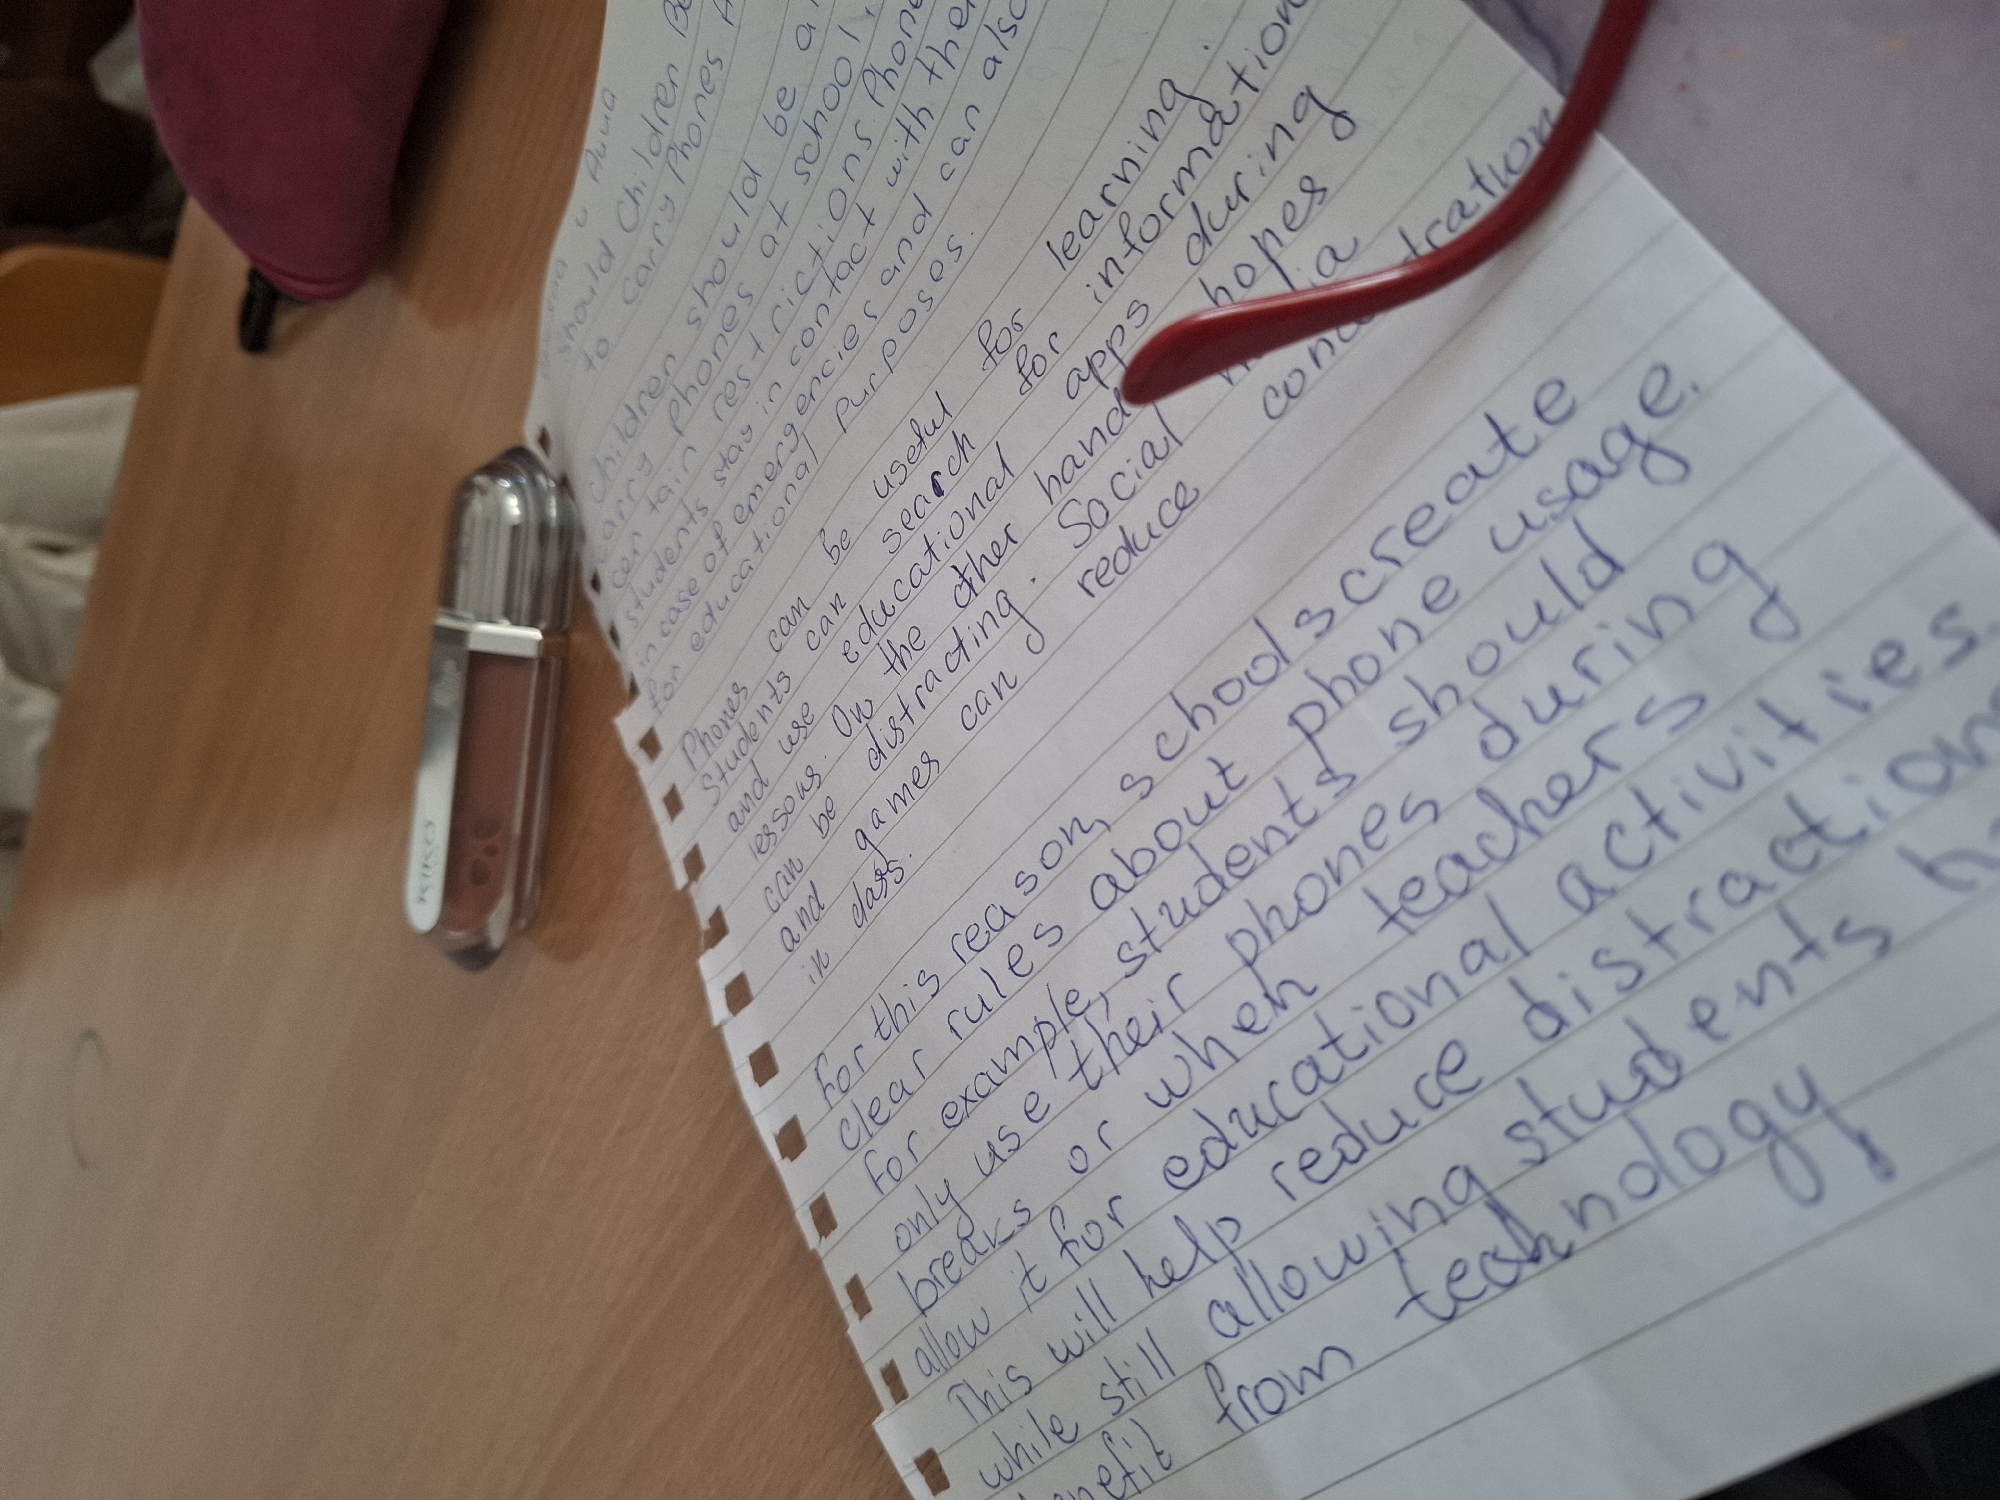 Should Children Be
to carry Phones
Children should be a
carry phones at school,
certain restrictions. Phone
students stay in contact with their
in case of emergencies and can also
for educational purposes.
Phones can be useful for learning.
Students can search for information
and use educational apps during
lessons. On the other hand
can be distracting. Social
and games can reduce
in class.
For this reason, schools create
clear rules about phone usage.
For example, students should
only use their phones during
breaks or when teachers
allow it for educational activities.
This will help reduce distraction
while still allowing students
from technology
KIKO